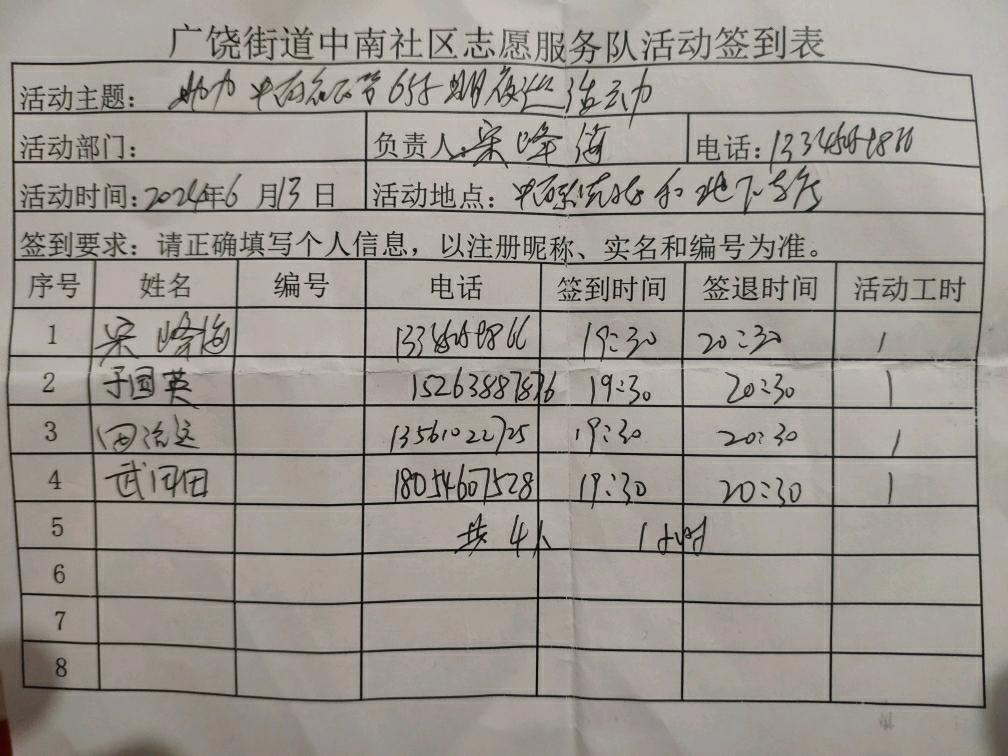 广饶街道中南社区志愿服务队活动签到表
活动主题: 助力 655期夜巡活动
活动部门: 负责人: 宋峰海 电话:
活动时间: 2024年6月13日 活动地点: 和地下车
签到要求: 请正确填写个人信息，以注册昵称、实名和编号为准。
序号 姓名 编号 电话 签到时间 签退时间 活动工时
1 宋峰海 19:30 20:30 1
2 国英 15263887876 19:30 20:30 1
3 田 13561022725 19:30 20:30 1
4 武 田 18054607528 19:30 20:30 1
5 共4人 1小时
6
7
8